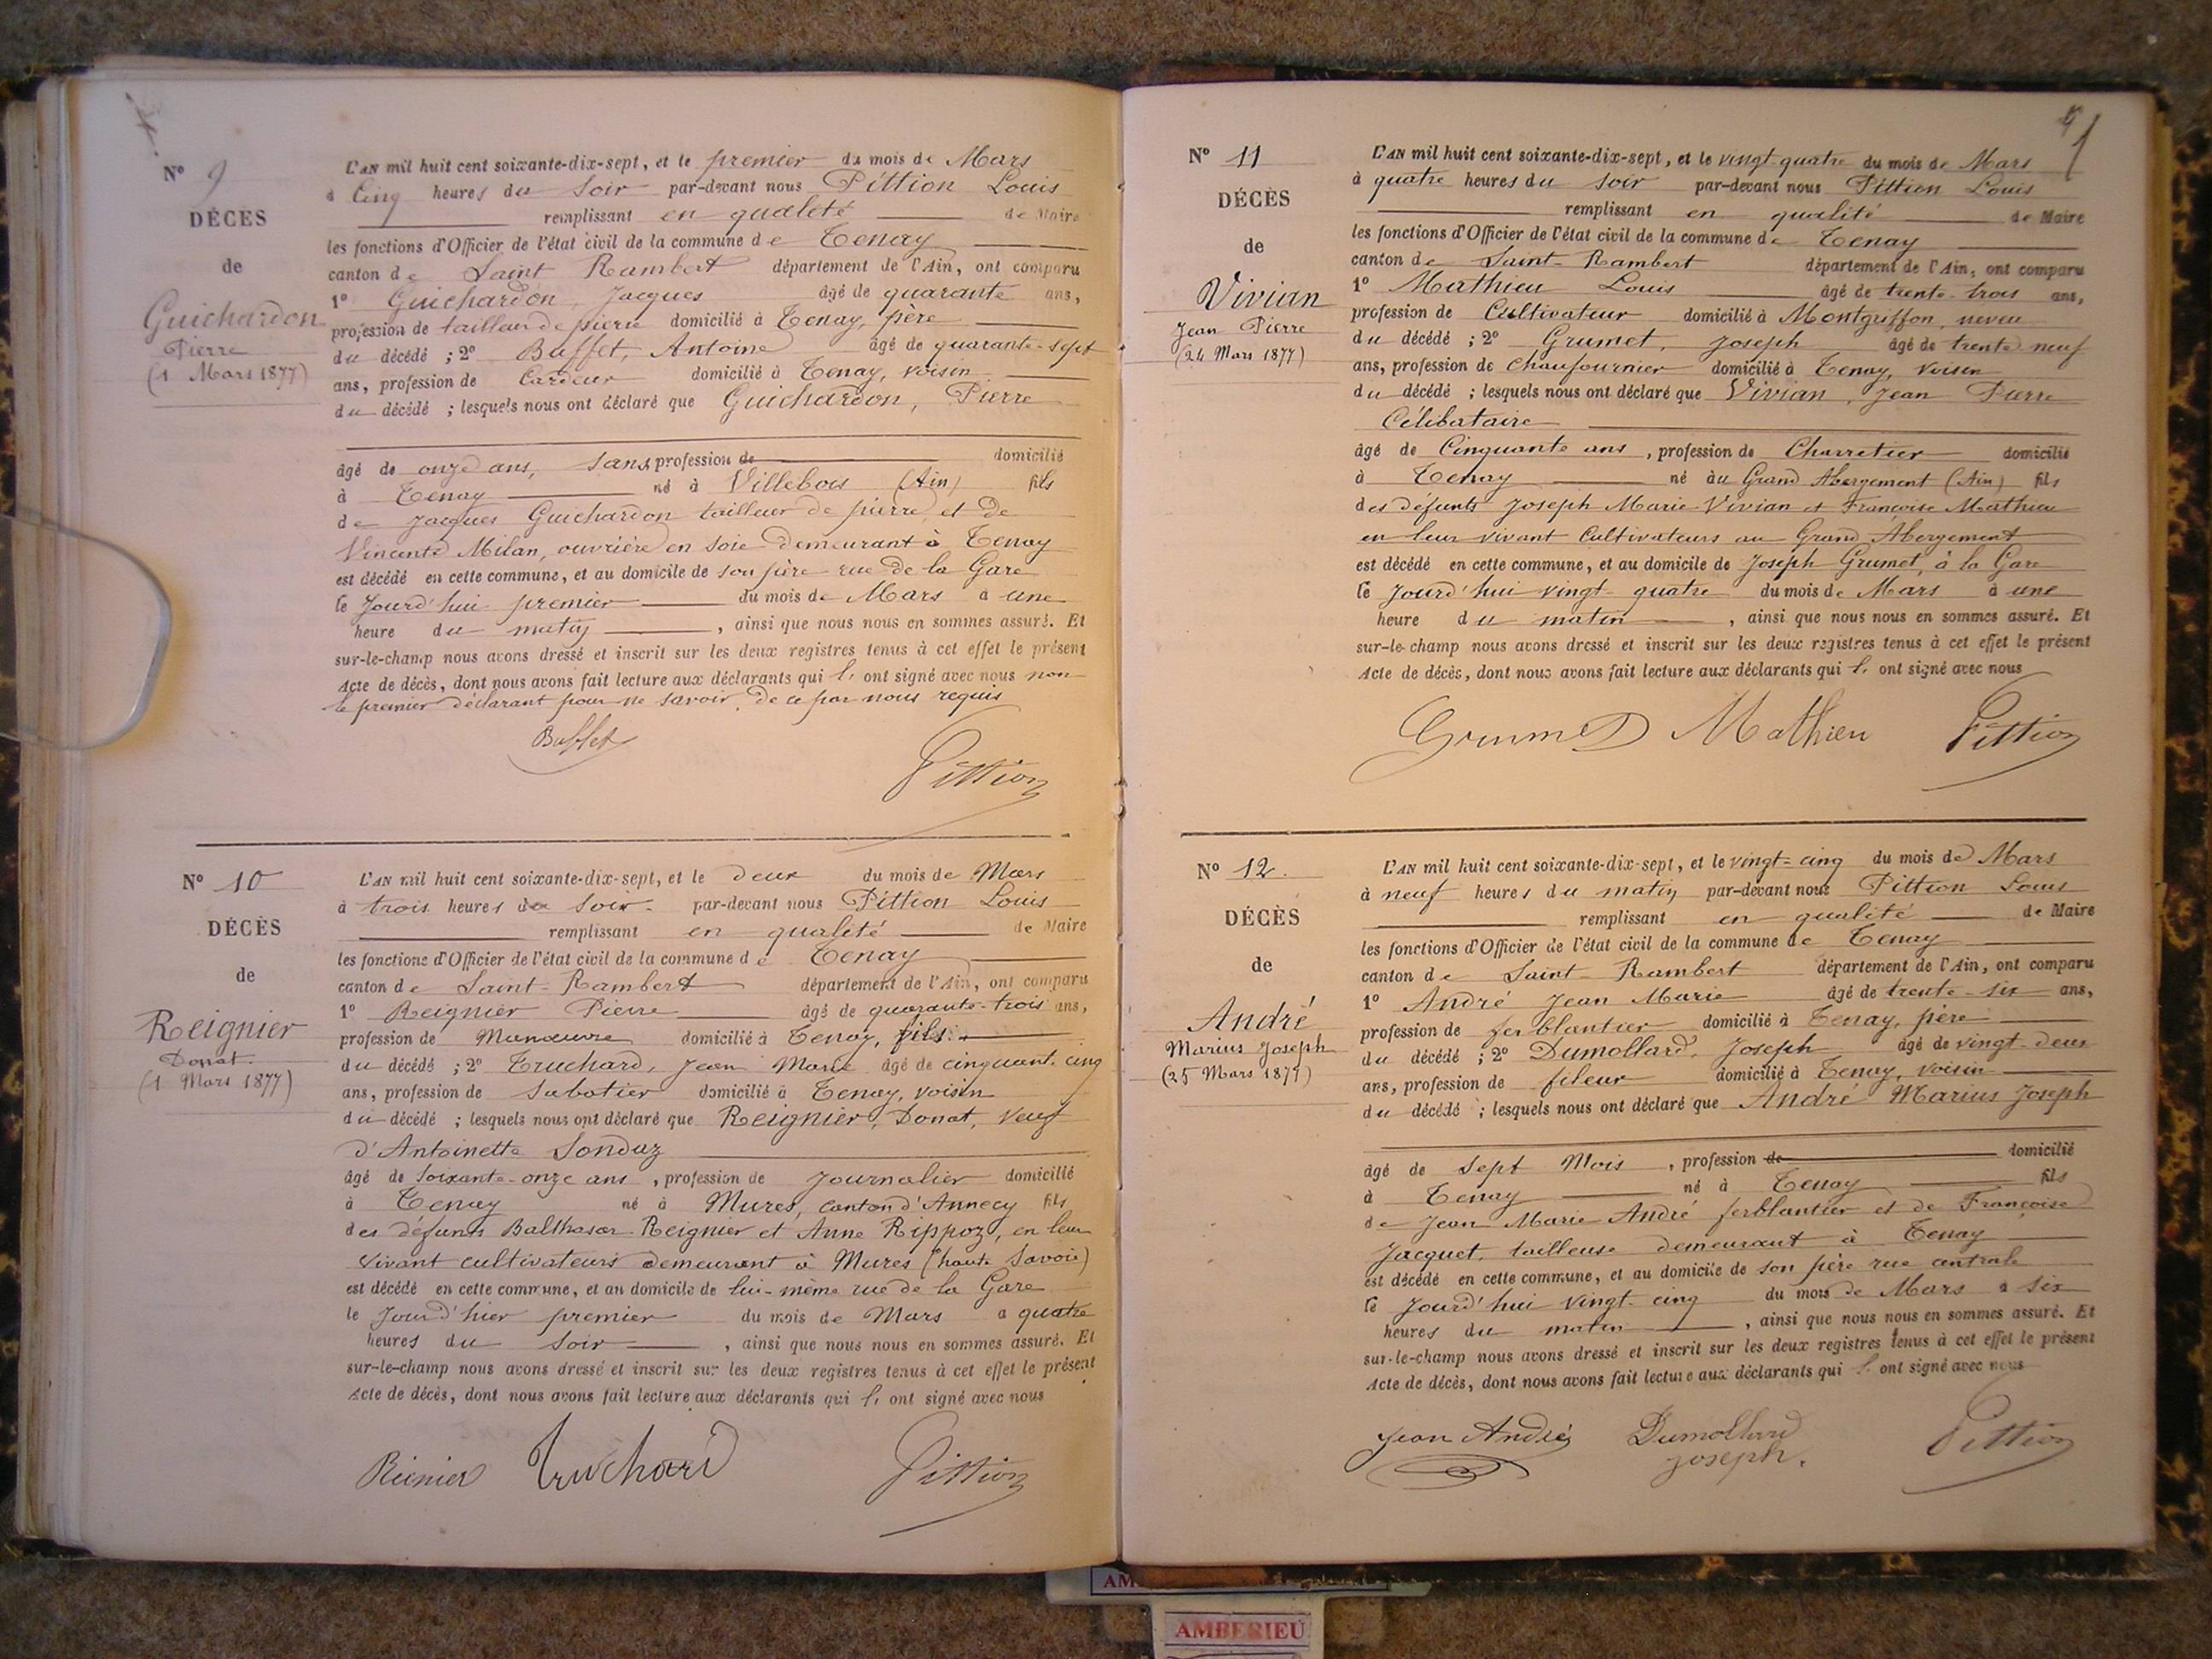 N° 9
DÉCÈS
de
Guichardon
Pierre
(1 Mars 1877)
L'AN mil huit cent soixante-dix-sept, et le premier du mois de Mars
à Cinq heures du Soir par-devant nous Pittion Louis
remplissant en qualité de Maire
les fonctions d'Officier de l'état civil de la commune de Tenay
canton de Saint Rambert département de l'Ain, ont comparu
1° Guichardon, Jacques âgé de quarante ans,
profession de tailleur de pierre domicilié à Tenay, père
du décédé ; 2° Buffet, Antoine âgé de quarante-sept
ans, profession de Cardeur domicilié à Tenay, voisin
du décédé ; lesquels nous ont déclaré que Guichardon, Pierre
âgé de onze ans, sans profession de domicilié
à Tenay né à Villebois (Ain) fils
de Jacques Guichardon tailleur de pierre et de
Vincente Milan, ouvrière en soie demeurant à Tenay
est décédé en cette commune, et au domicile de son père rue de la Gare
le jourd'hui premier du mois de Mars à une
heure du matin, ainsi que nous nous en sommes assuré. Et
sur-le-champ nous avons dressé et inscrit sur les deux registres tenus à cet effet le présent
Acte de décès, dont nous avons fait lecture aux déclarants qui l' ont signé avec nous non
le premier déclarant pour ne savoir, de ce par nous requis
Buffet
Pittion
N° 10
DÉCÈS
de
Reignier
Donat
(1 Mars 1877)
L'AN mil huit cent soixante-dix-sept, et le deux du mois de Mars
à trois heures du soir par-devant nous Pittion Louis
remplissant en qualité de Maire
les fonctions d'Officier de l'état civil de la commune de Tenay
canton de Saint-Rambert département de l'Ain, ont comparu
1° Reignier Pierre âgé de quarante-trois ans,
profession de Manœuvre domicilié à Tenay, fils
du décédé ; 2° Truchard, Jean Marie âgé de cinquant-cinq
ans, profession de Sabotier domicilié à Tenay, voisin
du décédé ; lesquels nous ont déclaré que Reignier, Donat, veuf
d'Antoinette Sonduz
âgé de soixante-onze ans, profession de Journalier domicilié
à Tenay né à Mures, canton d'Annecy fils
des défunts Balthasar Reignier et Anne Rippoz, en leur
vivant cultivateurs demeurant à Mures (haute Savoie)
est décédé en cette commune, et au domicile de lui-même rue de la Gare
le jourd'hier premier du mois de Mars à quatre
heures du soir, ainsi que nous nous en sommes assuré. Et
sur-le-champ nous avons dressé et inscrit sur les deux registres tenus à cet effet le présent
Acte de décès, dont nous avons fait lecture aux déclarants qui l' ont signé avec nous
Reinier Truchard Pittion
N° 11
DÉCÈS
de
Vivian
Jean Pierre
(24 Mars 1877)
L'AN mil huit cent soixante-dix-sept, et le vingt-quatre du mois de Mars
à quatre heures du soir par-devant nous Pittion Louis
remplissant en qualité de Maire
les fonctions d'Officier de l'état civil de la commune de Tenay
canton de Saint-Rambert département de l'Ain, ont comparu
1° Mathieu Louis âgé de trente-trois ans,
profession de Cultivateur domicilié à Montgriffon, neveu
du décédé ; 2° Grumet, Joseph âgé de trente neuf
ans, profession de Chaufournier domicilié à Tenay, voisin
du décédé ; lesquels nous ont déclaré que Vivian, Jean Pierre
Célibataire
âgé de Cinquante ans, profession de Charretier domicilié
à Tenay né au Grand Abergement (Ain) fils
des défunts Joseph Marie Vivian et Françoise Mathieu
en leur vivant Cultivateurs au Grand Abergement
est décédé en cette commune, et au domicile de Joseph Grumet, à la Gare
le jourd'hui vingt-quatre du mois de Mars à une
heure du matin, ainsi que nous nous en sommes assuré. Et
sur-le-champ nous avons dressé et inscrit sur les deux registres tenus à cet effet le présent
Acte de décès, dont nous avons fait lecture aux déclarants qui l' ont signé avec nous
Grumet Mathieu Pittion
N° 12
DÉCÈS
de
André
Marius Joseph
(25 Mars 1877)
L'AN mil huit cent soixante-dix-sept, et le vingt-cinq du mois de Mars
à neuf heures du matin par-devant nous Pittion Louis
remplissant en qualité de Maire
les fonctions d'Officier de l'état civil de la commune de Tenay
canton de Saint-Rambert département de l'Ain, ont comparu
1° André Jean Marie âgé de trente-six ans,
profession de ferblantier domicilié à Tenay, père
du décédé ; 2° Dumollard, Joseph âgé de vingt-deux
ans, profession de fileur domicilié à Tenay, voisin
du décédé ; lesquels nous ont déclaré que André Marius Joseph
âgé de sept Mois, profession de domicilié
à Tenay né à Tenay fils
de Jean Marie André ferblantier et de Françoise
Jacquet, tailleuse demeurant à Tenay
est décédé en cette commune, et au domicile de son père rue centrale
le jourd'hui vingt-cinq du mois de Mars à six
heures du matin, ainsi que nous nous en sommes assuré. Et
sur-le-champ nous avons dressé et inscrit sur les deux registres tenus à cet effet le présent
Acte de décès, dont nous avons fait lecture aux déclarants qui l' ont signé avec nous
Jean André Dumollard Pittion
Joseph.
AMBERIEU